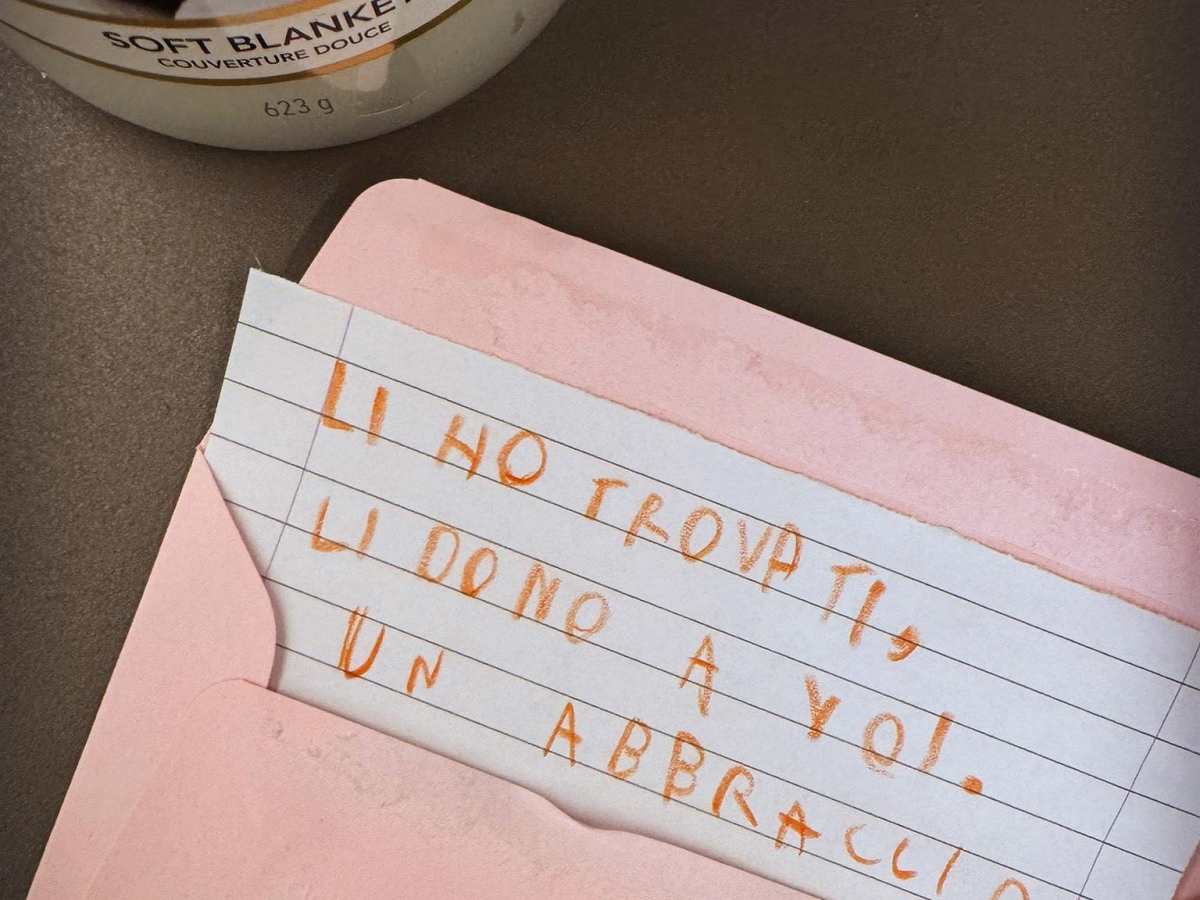 SOFT BLANKET
COUVERTURE DOUCE
623 g
LI HO TROVATI,
LI DONO A VOI.
UN ABBRACCIO